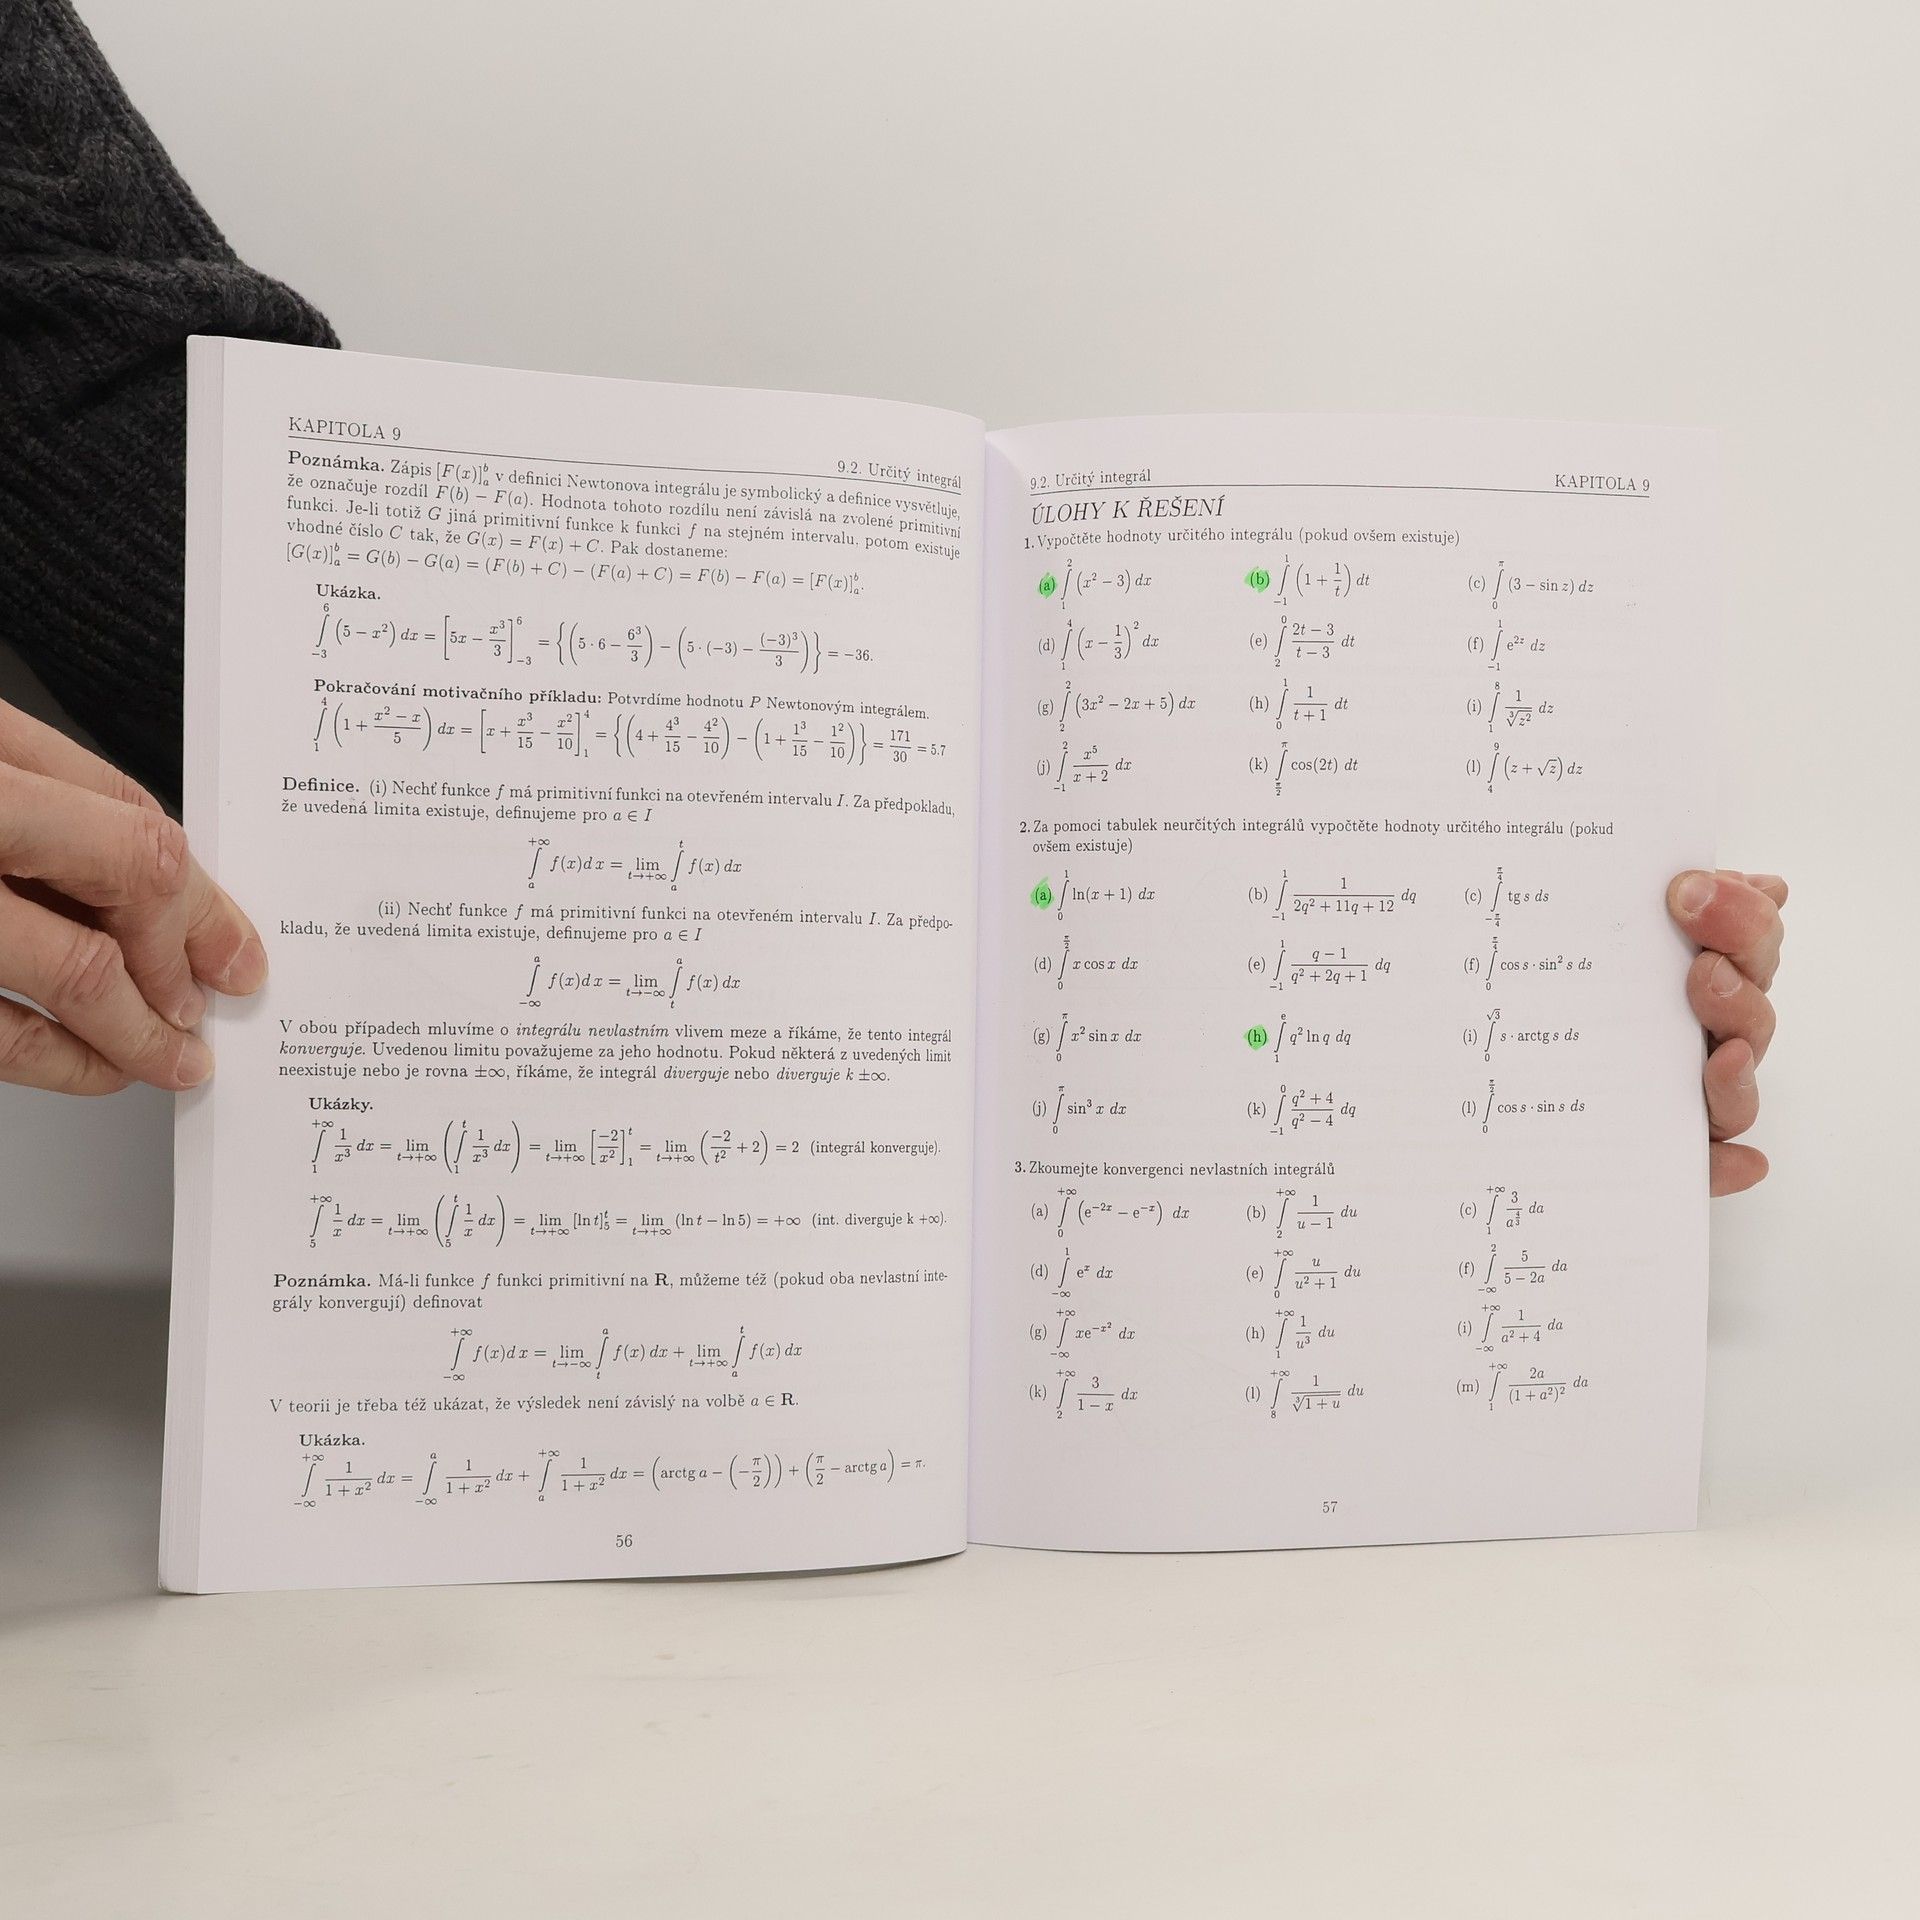 KAPITOLA 9
9.2. Určitý integrál
Poznámka. Zápis [F(x)]ₐᵇ v definici Newtonova integrálu je symbolický a definice vysvětluje,
že označuje rozdíl F(b) − F(a). Hodnota tohoto rozdílu není závislá na zvolené primitivní
funkci. Je-li totiž G jiná primitivní funkce k funkci f na stejném intervalu, potom existuje
vhodné číslo C tak, že G(x) = F(x) + C. Pak dostaneme:
[G(x)]ₐᵇ = G(b) − G(a) = (F(b) + C) − (F(a) + C) = F(b) − F(a) = [F(x)]ₐᵇ.
Ukázka.
∫_{−3}^{6} (5 − x²) dx = [5x − x³/3]_{−3}^{6} = {(5 · 6 − 6³/3) − (5 · (−3) − (−3)³/3)} = −36.
Pokračování motivačního příkladu: Potvrdíme hodnotu P Newtonovým integrálem.
∫_{1}^{4} (1 + (x² − x)/5) dx = [x + x³/15 − x²/10]_{1}^{4} = {(4 + 4³/15 − 4²/10) − (1 + 1³/15 − 1²/10)} = 171/30 = 5.7
Definice. (i) Nechť funkce f má primitivní funkci na otevřeném intervalu I. Za předpokladu,
že uvedená limita existuje, definujeme pro a ∈ I
∫_{a}^{+∞} f(x)dx = lim_{t→+∞} ∫_{a}^{t} f(x) dx
(ii) Nechť funkce f má primitivní funkci na otevřeném intervalu I. Za předpo-
kladu, že uvedená limita existuje, definujeme pro a ∈ I
∫_{−∞}^{a} f(x)dx = lim_{t→−∞} ∫_{t}^{a} f(x) dx
V obou případech mluvíme o integrálu nevlastním vlivem meze a říkáme, že tento integrál
konverguje. Uvedenou limitu považujeme za jeho hodnotu. Pokud některá z uvedených limit
neexistuje nebo je rovna ±∞, říkáme, že integrál diverguje nebo diverguje k ±∞.
Ukázky.
∫_{1}^{+∞} 1/x³ dx = lim_{t→+∞} (∫_{1}^{t} 1/x³ dx) = lim_{t→+∞} [−2/x²]_{1}^{t} = lim_{t→+∞} (−2/t² + 2) = 2 (integrál konverguje).
∫_{5}^{+∞} 1/x dx = lim_{t→+∞} (∫_{5}^{t} 1/x dx) = lim_{t→+∞} [ln t]_{5}^{t} = lim_{t→+∞} (ln t − ln 5) = +∞ (int. diverguje k +∞).
Poznámka. Má-li funkce f funkci primitivní na R, můžeme též (pokud oba nevlastní inte-
grály konvergují) definovat
∫_{−∞}^{+∞} f(x)dx = lim_{t→−∞} ∫_{t}^{a} f(x) dx + lim_{t→+∞} ∫_{a}^{t} f(x) dx
V teorii je třeba též ukázat, že výsledek není závislý na volbě a ∈ R.
Ukázka.
∫_{−∞}^{+∞} 1/(1 + x²) dx = ∫_{−∞}^{a} 1/(1 + x²) dx + ∫_{a}^{+∞} 1/(1 + x²) dx = (arctg a − (−π/2)) + (π/2 − arctg a) = π.
56
9.2. Určitý integrál KAPITOLA 9
ÚLOHY K ŘEŠENÍ
1. Vypočtěte hodnoty určitého integrálu (pokud ovšem existuje)
(a) ∫_{1}^{2} (x² − 3) dx (b) ∫_{−1}^{1} (1 + 1/t) dt (c) ∫_{0}^{π} (3 − sin z) dz
(d) ∫_{1}^{4} (x − 1/3)² dx (e) ∫_{2}^{0} (2t − 3)/(t − 3) dt (f) ∫_{−1}^{1} e^{2z} dz
(g) ∫_{2}^{2} (3x² − 2x + 5) dx (h) ∫_{0}^{1} 1/(t + 1) dt (i) ∫_{1}^{8} 1/∛(z²) dz
(j) ∫_{−1}^{2} x⁵/(x + 2) dx (k) ∫_{π/2}^{π} cos(2t) dt (l) ∫_{4}^{9} (z + √z) dz
2. Za pomoci tabulek neurčitých integrálů vypočtěte hodnoty určitého integrálu (pokud
ovšem existuje)
(a) ∫_{0}^{1} ln(x + 1) dx (b) ∫_{−1}^{1} 1/(2q² + 11q + 12) dq (c) ∫_{−π/4}^{π/4} tg s ds
(d) ∫_{0}^{π/2} x cos x dx (e) ∫_{−1}^{1} (q − 1)/(q² + 2q + 1) dq (f) ∫_{0}^{π/4} cos s · sin² s ds
(g) ∫_{0}^{π} x² sin x dx (h) ∫_{1}^{e} q² ln q dq (i) ∫_{0}^{√3} s · arctg s ds
(j) ∫_{0}^{π} sin³ x dx (k) ∫_{−1}^{0} (q² + 4)/(q² − 4) dq (l) ∫_{0}^{π/2} cos s · sin s ds
3. Zkoumejte konvergenci nevlastních integrálů
(a) ∫_{0}^{+∞} (e^{−2x} − e^{−x}) dx (b) ∫_{2}^{+∞} 1/(u − 1) du (c) ∫_{1}^{+∞} 3/a^{4/3} da
(d) ∫_{−∞}^{1} eˣ dx (e) ∫_{0}^{+∞} u/(u² + 1) du (f) ∫_{−∞}^{2} 5/(5 − 2a) da
(g) ∫_{−∞}^{+∞} xe^{−x²} dx (h) ∫_{1}^{+∞} 1/u³ du (i) ∫_{−∞}^{+∞} 1/(a² + 4) da
(k) ∫_{2}^{+∞} 3/(1 − x) dx (l) ∫_{8}^{+∞} 1/∛(1 + u) du (m) ∫_{1}^{+∞} 2a/(1 + a²)² da
57